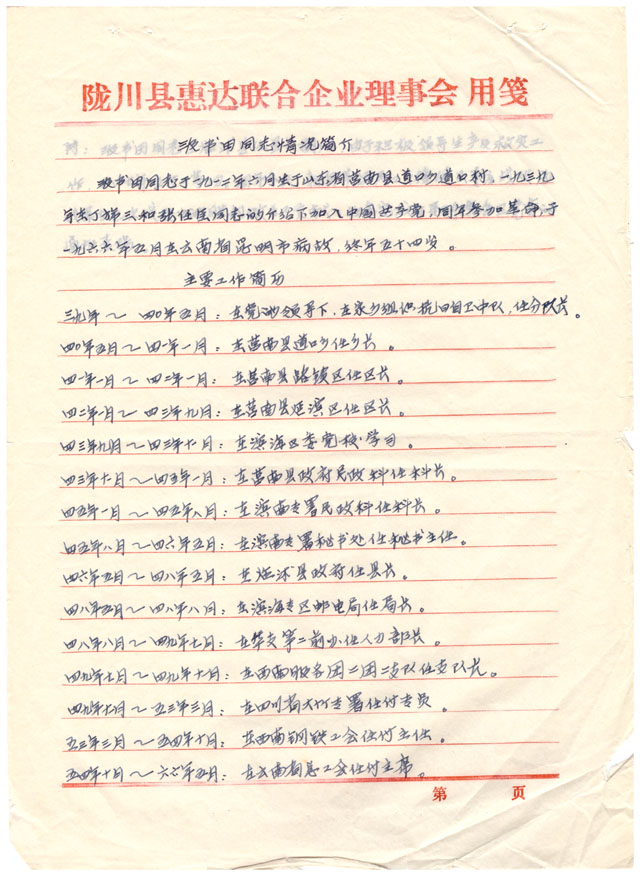 陇川县惠达联合企业理事会 用笺
书田同志情况简介
书田同志于一九一二年 月生于山东省莒南县道口乡道口村,一九三九
年在 和 同志的介绍下加入中国共产党,同年参加革命,于
一九六六年五月在云南省昆明市病故,终年五十四岁。
主要工作简历
三九年~四〇年五月:在党的领导下,在家乡组织抗日自卫中队,任分队长。
四〇年五月~四一年一月:在莒南县道口乡任乡长。
四一年一月~四二年一月:在莒南县路镇区任区长。
四二年一月~四三年九月:在莒南县延滨区任区长。
四三年九月~四三年十月:在滨海区委党校学习。
四三年十月~四五年一月:在莒南县政府民政科任科长。
四五年一月~四五年八月:在滨南专署民政科任科长。
四五年八月~四六年五月:在滨南专署秘书处任秘书主任。
四六年五月~四八年五月:在临沭县政府任县长。
四八年五月~四八年八月:在滨海专区邮电局任局长。
四八年八月~四九年七月:在华支第二前办任人力部长。
四九年七月~四九年十月:在西南服务团二团二支队任支队长。
四九年十月~五三年三月:在四川省大竹专署任付专员。
五三年三月~五四年十月:在西南钢铁工会任付主任。
五四年十月~六六年五月:在云南省总工会任付主席。
第 页